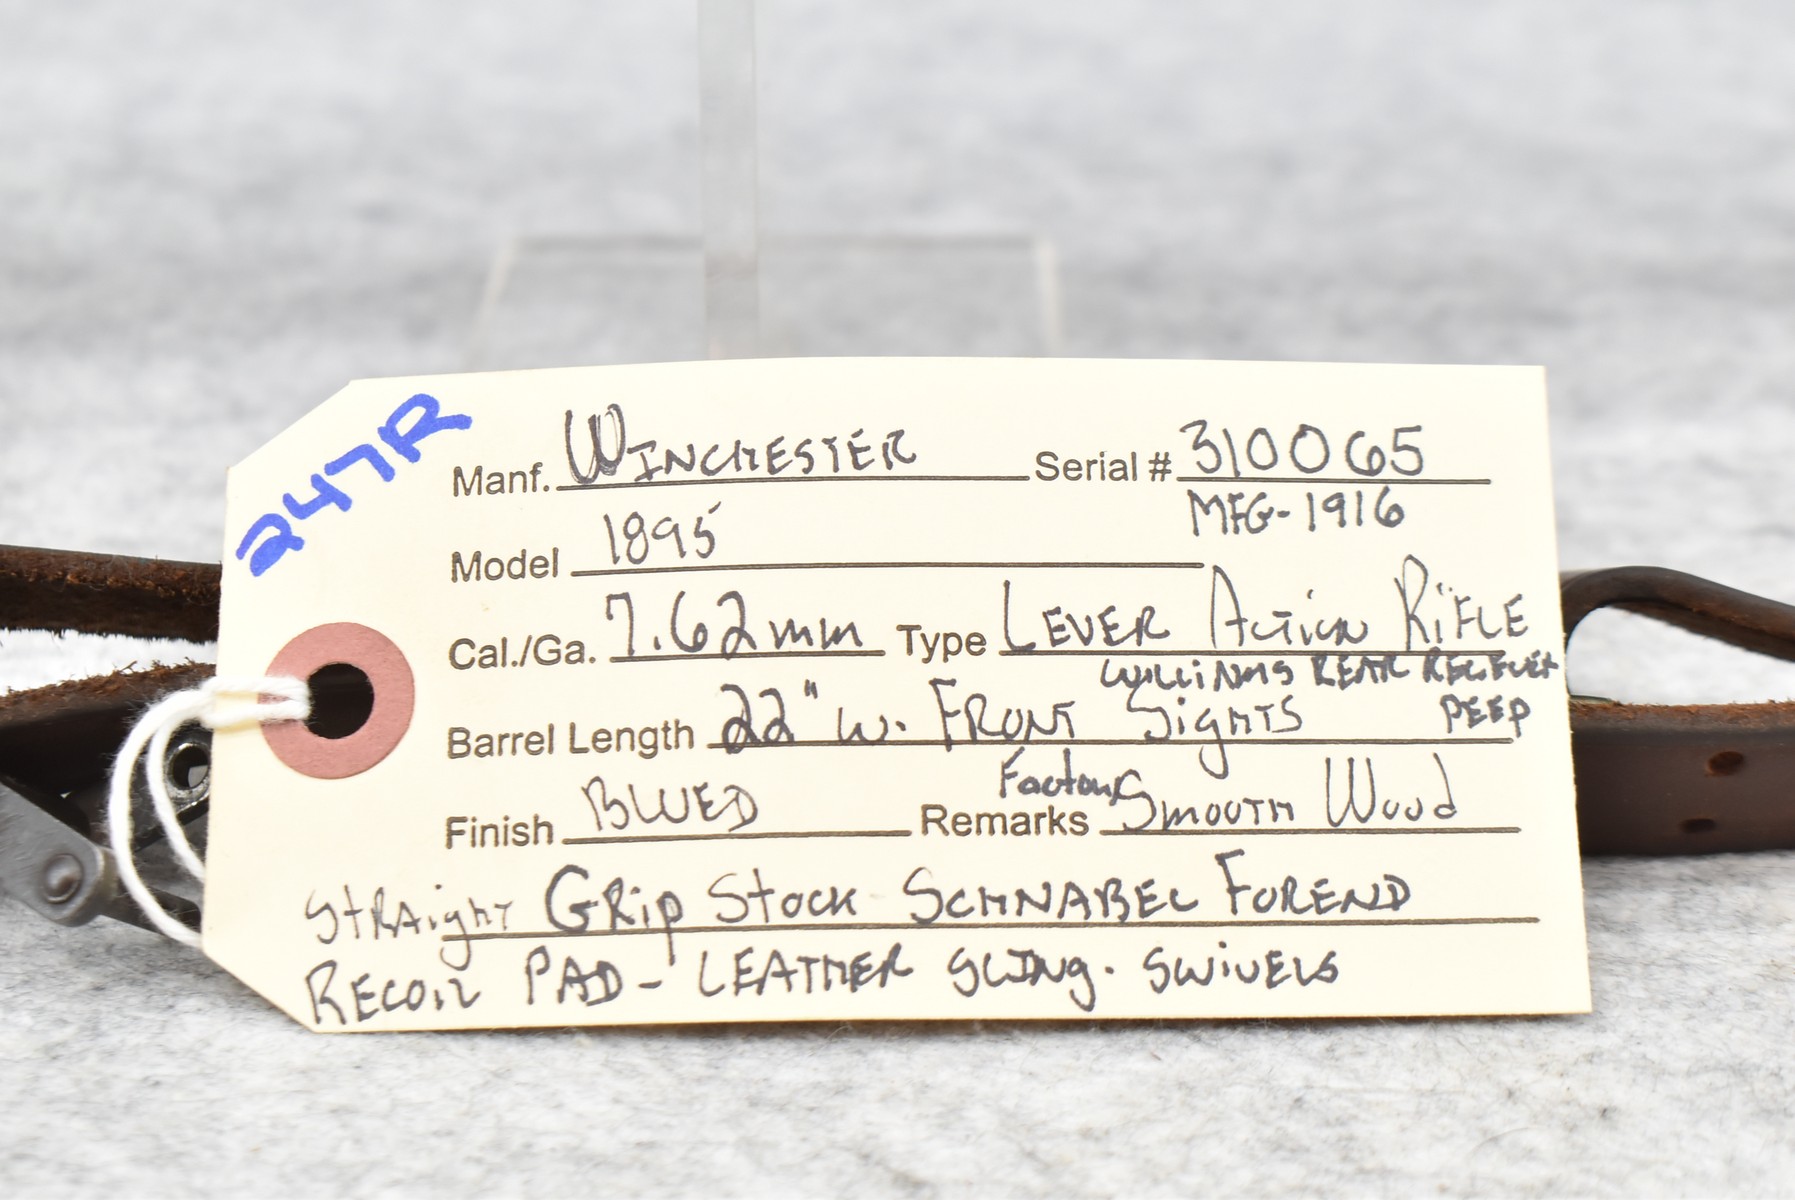 247R
Manf. WINCHESTER Serial # 310065
MFG-1916
Model 1895
Cal./Ga. 7.62mm Type LEVER ACTION RiFLE
WilliAMS REAR RECIEVER
Barrel Length 22" w. FRONT SigHTS PEEP
Finish BLUED Remarks Factory SMOOTH Wood
STRAigHT GRip Stock - SCHNABEL FOREND
RECOIL PAD - LEATHER SLING. SWiVELS